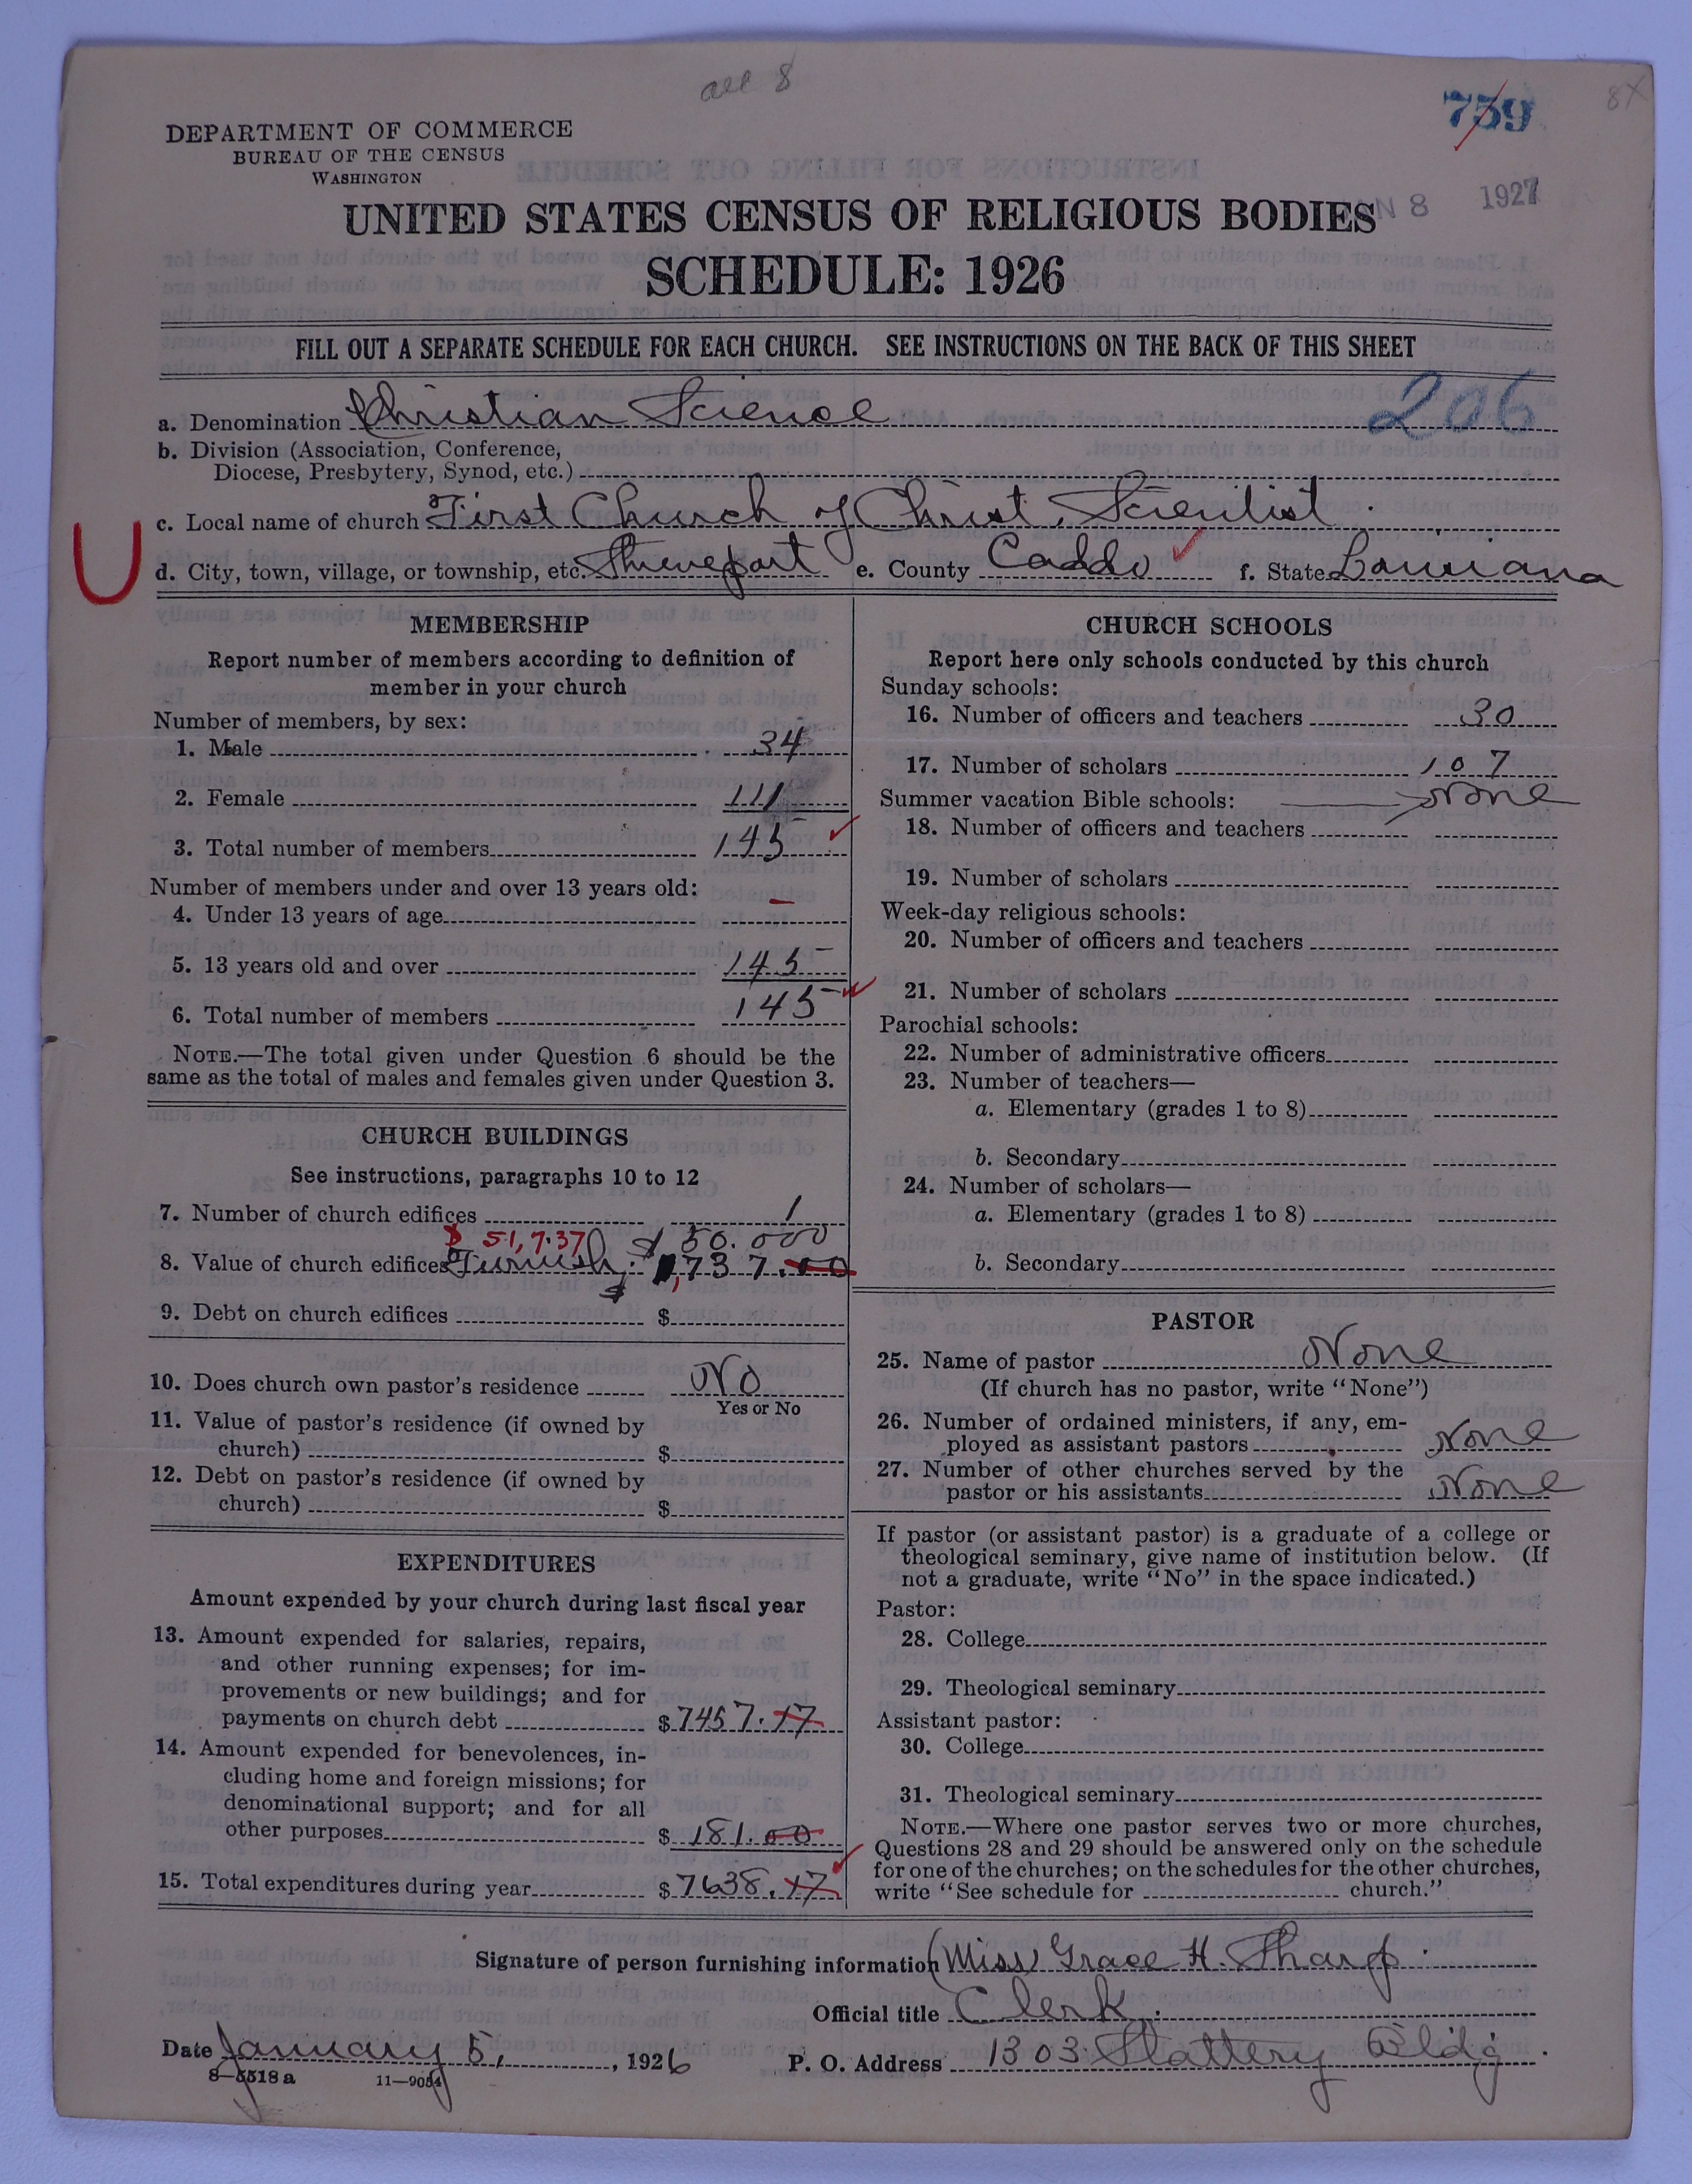 all 8
759
8X
DEPARTMENT OF COMMERCE
BUREAU OF THE CENSUS
WASHINGTON
N 8 1927
UNITED STATES CENSUS OF RELIGIOUS BODIES
SCHEDULE: 1926
FILL OUT A SEPARATE SCHEDULE FOR EACH CHURCH. SEE INSTRUCTIONS ON THE BACK OF THIS SHEET
a. Denomination Christian Science 206
b. Division (Association, Conference,
Diocese, Presbytery, Synod, etc.)
c. Local name of church First Church of Christ, Scientist.
U
d. City, town, village, or township, etc. Shreveport e. County Caddo f. State Louisiana
MEMBERSHIP
Report number of members according to definition of
member in your church
Number of members, by sex:
1. Male 34
2. Female 111
3. Total number of members 145
Number of members under and over 13 years old:
4. Under 13 years of age –
5. 13 years old and over 145
6. Total number of members 145
NOTE.—The total given under Question 6 should be the
same as the total of males and females given under Question 3.
CHURCH BUILDINGS
See instructions, paragraphs 10 to 12
7. Number of church edifices 1
$ 51,737 $ 50.000
8. Value of church edifices Furnish. $ 1,737.00
9. Debt on church edifices $
10. Does church own pastor's residence No
Yes or No
11. Value of pastor's residence (if owned by
church) $
12. Debt on pastor's residence (if owned by
church) $
EXPENDITURES
Amount expended by your church during last fiscal year
13. Amount expended for salaries, repairs,
and other running expenses; for im-
provements or new buildings; and for
payments on church debt $ 7457.17
14. Amount expended for benevolences, in-
cluding home and foreign missions; for
denominational support; and for all
other purposes $ 181.00
15. Total expenditures during year $ 7638.17
CHURCH SCHOOLS
Report here only schools conducted by this church
Sunday schools:
16. Number of officers and teachers 30
17. Number of scholars 107
Summer vacation Bible schools: None
18. Number of officers and teachers
19. Number of scholars
Week-day religious schools:
20. Number of officers and teachers
21. Number of scholars
Parochial schools:
22. Number of administrative officers
23. Number of teachers—
a. Elementary (grades 1 to 8)
b. Secondary
24. Number of scholars—
a. Elementary (grades 1 to 8)
b. Secondary
PASTOR
25. Name of pastor None
(If church has no pastor, write "None")
26. Number of ordained ministers, if any, em-
ployed as assistant pastors None
27. Number of other churches served by the
pastor or his assistants None
If pastor (or assistant pastor) is a graduate of a college or
theological seminary, give name of institution below. (If
not a graduate, write "No" in the space indicated.)
Pastor:
28. College
29. Theological seminary
Assistant pastor:
30. College
31. Theological seminary
NOTE.—Where one pastor serves two or more churches,
Questions 28 and 29 should be answered only on the schedule
for one of the churches; on the schedules for the other churches,
write "See schedule for church."
Signature of person furnishing information (Miss) Grace H. Tharp.
Official title Clerk.
Date January 5, 1926 P. O. Address 1303 Slattery Bldg.
8—5518 a 11—9054